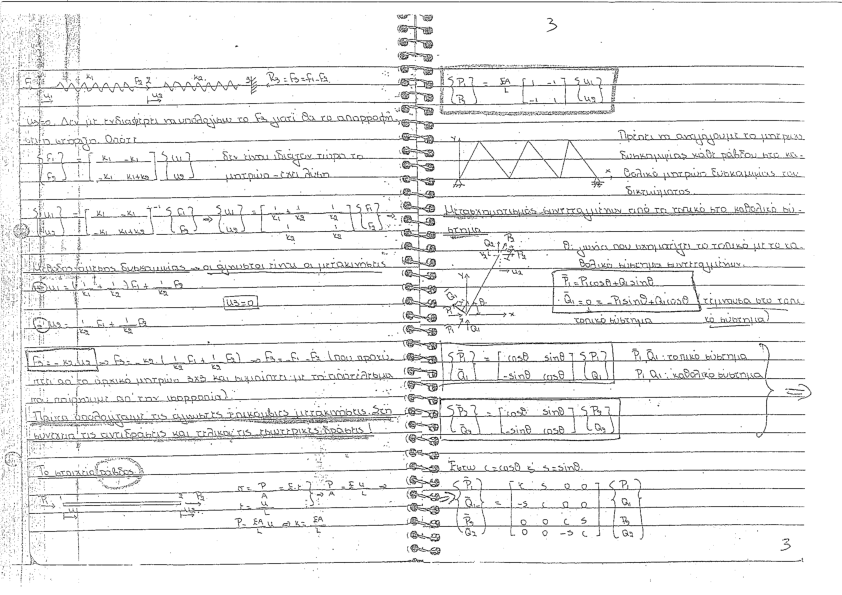 3
F₁ k₁ F₂ 2 k₂ 3 R₃ = F₃ = -F₁-F₂
u₁ u₂
u₃=0. Δεν με ενδιαφέρει να υπολογίσω το F₃ γιατί θα το απορροφή-
σει η στήριξη. Οπότε
{F₁ F₂} = [k₁ -k₁ -k₁ k₁+k₂] {u₁ u₂} δεν είναι ιδιάζον τώρα το
μητρώο - έχει λύση
{u₁ u₂} = [k₁ -k₁ -k₁ k₁+k₂]⁻¹ {F₁ F₂} ⇒ {u₁ u₂} = [1/k₁+1/k₂ 1/k₂ 1/k₂ 1/k₂] {F₁ F₂} ⇒
Μέθοδος άμεσης δυσκαμψίας → οι άγνωστοι είναι οι μετακινήσεις
⇒ u₁ = (1/k₁ + 1/k₂) F₁ + 1/k₂ F₂
u₃=0
⇒ u₂ = 1/k₂ F₁ + 1/k₂ F₂
F₃ = -k₂ u₂ ⇒ F₃ = -k₂ (1/k₂ F₁ + 1/k₂ F₂) ⇒ F₃ = -F₁ -F₂ (που προκύ-
πτει απ' το αρχικό μητρώο 3x3 και συμπίπτει με το αποτέλεσμα
που παίρνουμε απ' την ισορροπία).
Πρώτα υπολογίζαμε τις άγνωστες επικόμβιες μετακινήσεις. Στη
συνέχεια τις αντιδράσεις και τελικά τις εσωτερικές δράσεις!
Το στοιχείο ράβδος
P₁ 1 2 P₂
u₁ u₂
σ = P/A = Eε
ε = u/L
⇒ P/A = E u/L ⇒
P = EA/L u ⇒ k = EA/L
{P₁ P₂} = EA/L [1 -1 -1 1] {u₁ u₂}
Πρέπει να αναγάγουμε το μητρώο
δυσκαμψίας κάθε ράβδου στο κα-
θολικό μητρώο δυσκαμψίας του
δικτυώματος.
Y x
Μετασχηματισμός συντεταγμένων από το τοπικό στο καθολικό σύ-
στημα
θ: γωνία που σχηματίζει το τοπικό με το κα-
θολικό σύστημα συντεταγμένων.
P̄₁ = P₁cosθ + Q₁sinθ
Q̄₁ = 0 = -P₁sinθ + Q₁cosθ (τέμνουσα στο τοπι-
τοπικό σύστημα κό σύστημα)
{P̄₁ Q̄₁} = [cosθ sinθ -sinθ cosθ] {P₁ Q₁} P̄₁ Q̄₁: τοπικό σύστημα
P₁ Q₁: καθολικό σύστημα
{P̄₂ Q̄₂} = [cosθ sinθ -sinθ cosθ] {P₂ Q₂}
Έστω c=cosθ & s=sinθ.
{P̄₁ Q̄₁ P̄₂ Q̄₂} = [c s 0 0 -s c 0 0 0 0 c s 0 0 -s c] {P₁ Q₁ P₂ Q₂}
3